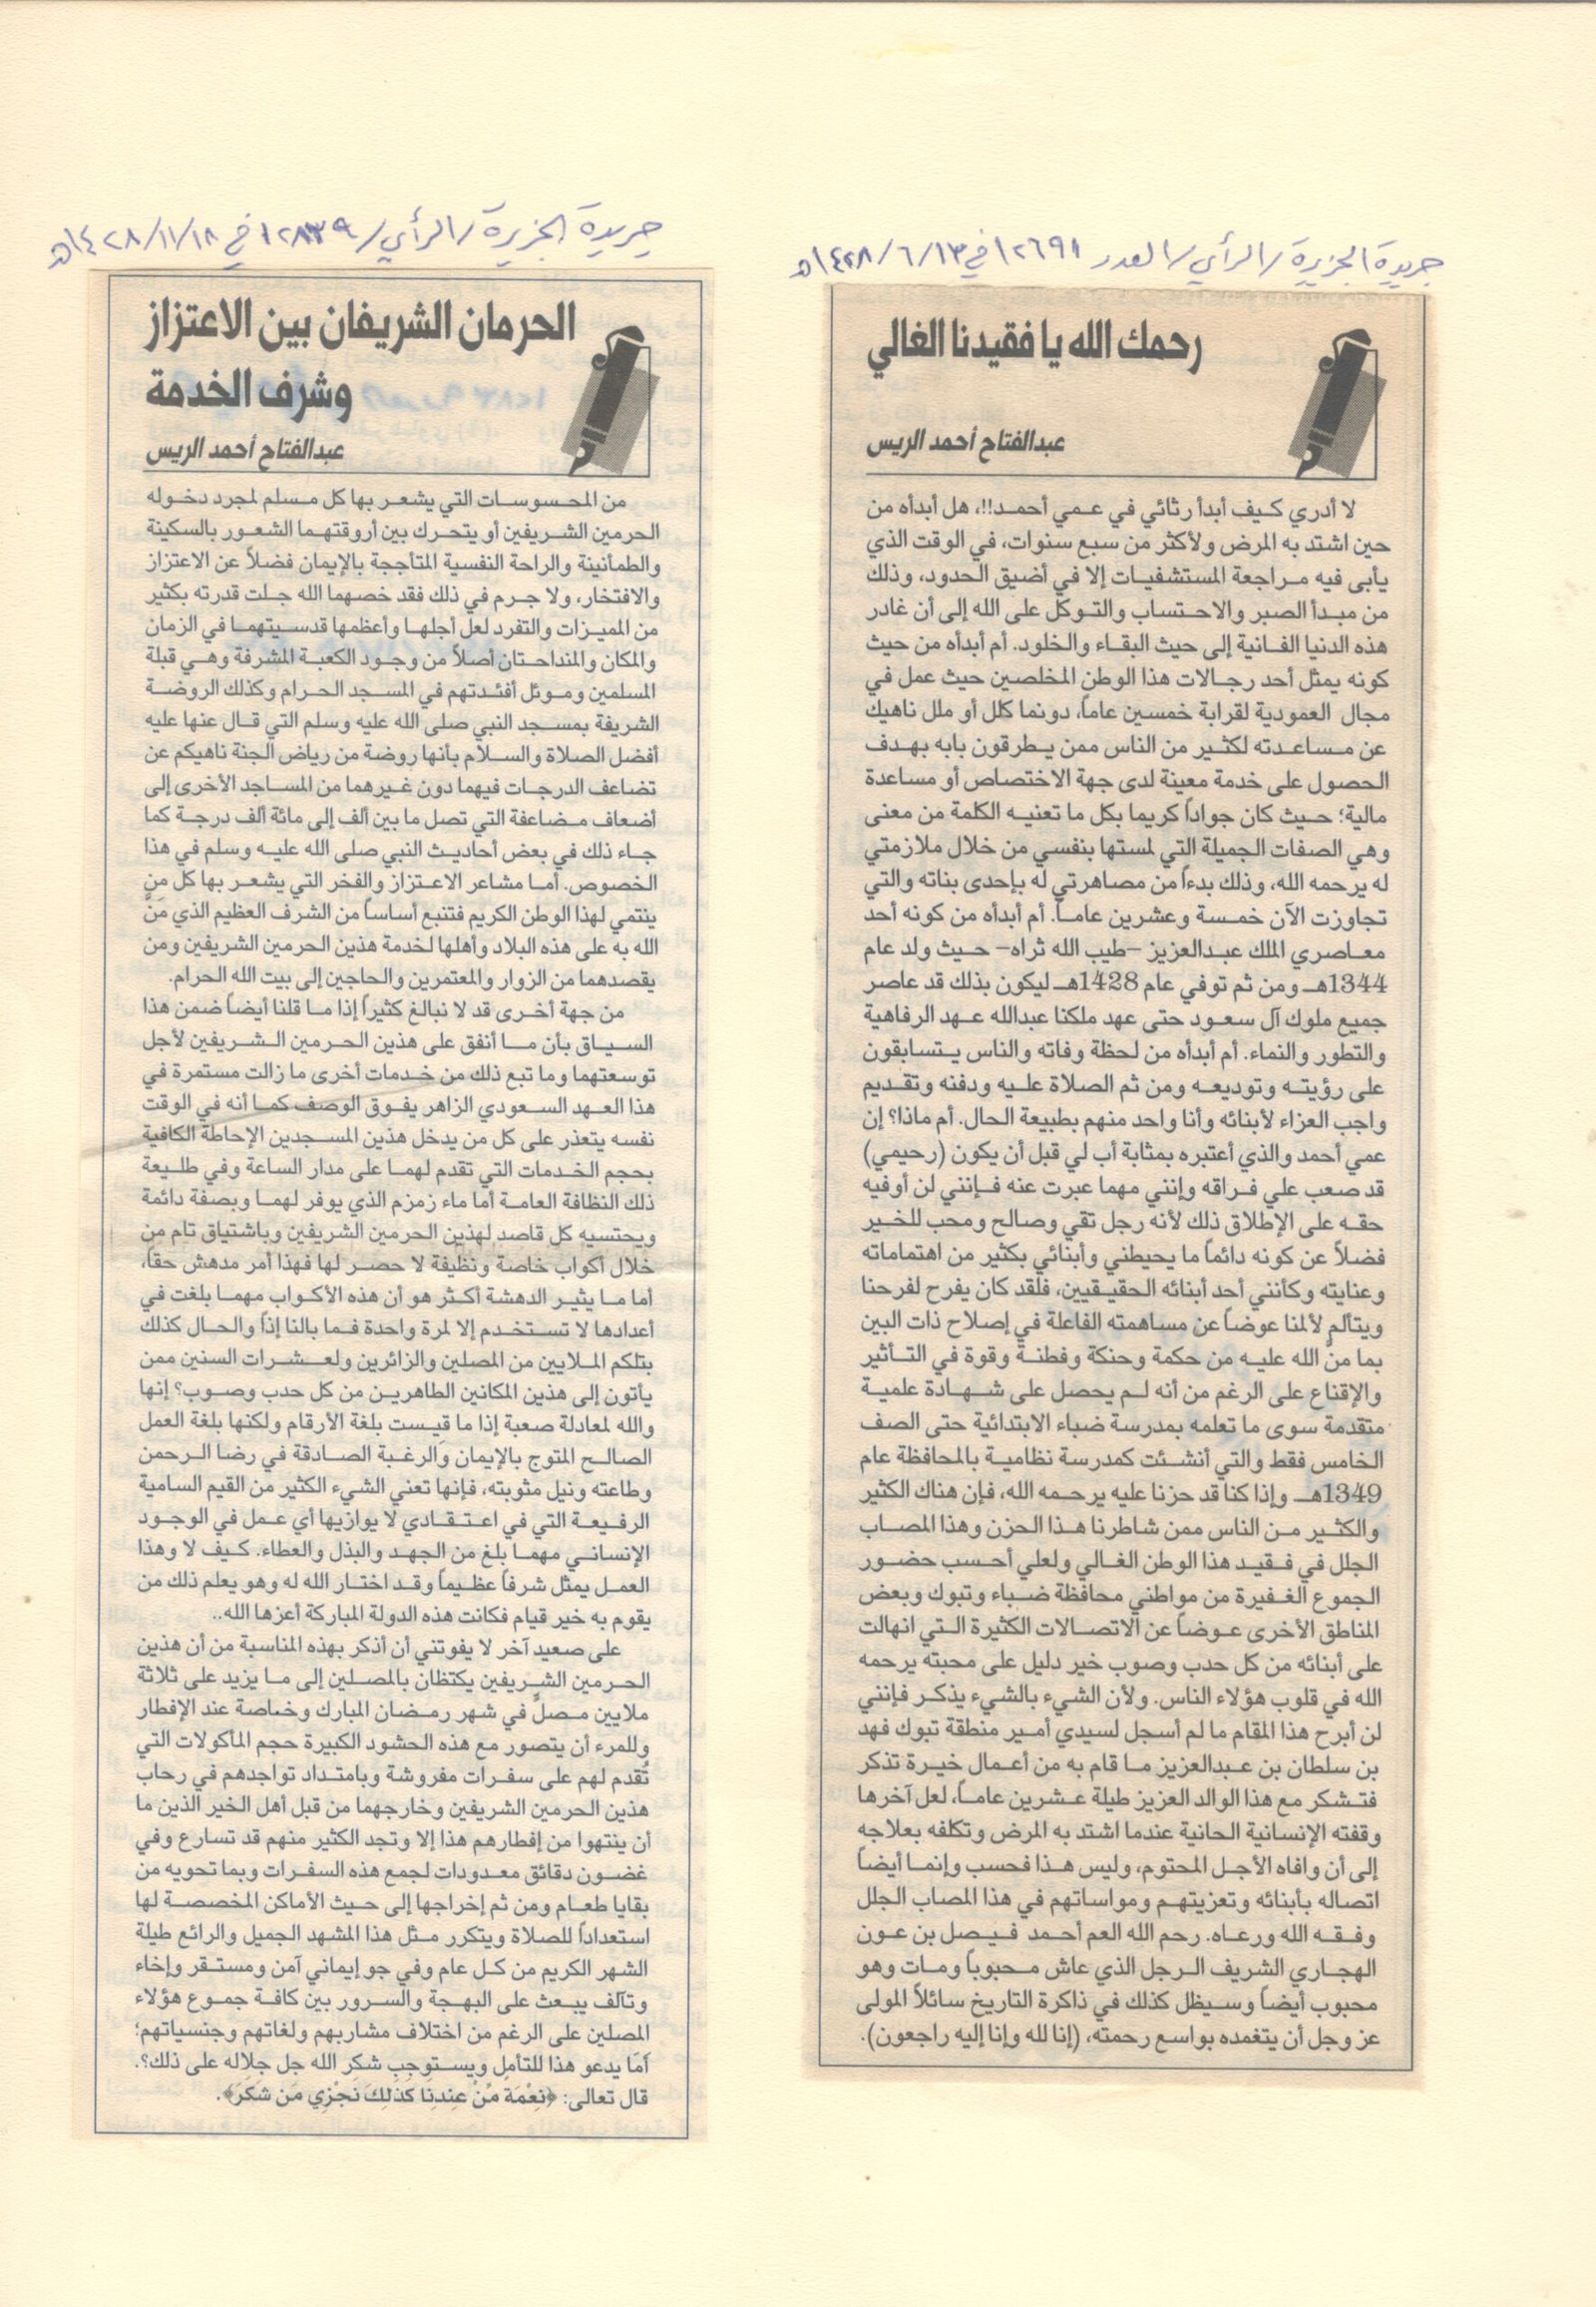 جريدة الجزيرة/الرأي/العدد ١٢٦٩١ في ١٤٢٨/٦/١٣هـ
رحمك الله يا فقيدنا الغالي
عبدالفتاح أحمد الريس
لا أدري كيف أبدأ رثائي في عمي أحمد!!، هل أبدأه من
حين اشتد به المرض ولأكثر من سبع سنوات، في الوقت الذي
يأبى فيه مراجعة المستشفيات إلا في أضيق الحدود، وذلك
من مبدأ الصبر والاحتساب والتوكل على الله إلى أن غادر
هذه الدنيا الفانية إلى حيث البقاء والخلود. أم أبدأه من حيث
كونه يمثل أحد رجالات هذا الوطن المخلصين حيث عمل في
مجال العمودية لقرابة خمسين عاماً، دونما كلل أو ملل ناهيك
عن مساعدته لكثير من الناس ممن يطرقون بابه بهدف
الحصول على خدمة معينة لدى جهة الاختصاص أو مساعدة
مالية؛ حيث كان جواداً كريما بكل ما تعنيه الكلمة من معنى
وهي الصفات الجميلة التي لمستها بنفسي من خلال ملازمتي
له يرحمه الله، وذلك بدءاً من مصاهرتي له بإحدى بناته والتي
تجاوزت الآن خمسة وعشرين عاماً. أم أبدأه من كونه أحد
معاصري الملك عبدالعزيز -طيب الله ثراه- حيث ولد عام
1344هـ ومن ثم توفي عام 1428هـ ليكون بذلك قد عاصر
جميع ملوك آل سعود حتى عهد ملكنا عبدالله عهد الرفاهية
والتطور والنماء. أم أبدأه من لحظة وفاته والناس يتسابقون
على رؤيته وتوديعه ومن ثم الصلاة عليه ودفنه وتقديم
واجب العزاء لأبنائه وأنا واحد منهم بطبيعة الحال. أم ماذا؟ إن
عمي أحمد والذي أعتبره بمثابة أب لي قبل أن يكون (رحيمي)
قد صعب علي فراقه وإنني مهما عبرت عنه فإنني لن أوفيه
حقه على الإطلاق ذلك لأنه رجل تقي وصالح ومحب للخير
فضلاً عن كونه دائماً ما يحيطني وأبنائي بكثير من اهتماماته
وعنايته وكأنني أحد أبنائه الحقيقيين، فلقد كان يفرح لفرحنا
ويتألم لألمنا عوضاً عن مساهمته الفاعلة في إصلاح ذات البين
بما منّ الله عليه من حكمة وحنكة وفطنة وقوة في التأثير
والإقناع على الرغم من أنه لم يحصل على شهادة علمية
متقدمة سوى ما تعلمه بمدرسة ضباء الابتدائية حتى الصف
الخامس فقط والتي أنشئت كمدرسة نظامية بالمحافظة عام
1349هـ وإذا كنا قد حزنا عليه يرحمه الله، فإن هناك الكثير
والكثير من الناس ممن شاطرنا هذا الحزن وهذا المصاب
الجلل في فقيد هذا الوطن الغالي ولعلي أحسب حضور
الجموع الغفيرة من مواطني محافظة ضباء وتبوك وبعض
المناطق الأخرى عوضاً عن الاتصالات الكثيرة التي انهالت
على أبنائه من كل حدب وصوب خير دليل على محبته يرحمه
الله في قلوب هؤلاء الناس. ولأن الشيء بالشيء يذكر فإنني
لن أبرح هذا المقام ما لم أسجل لسيدي أمير منطقة تبوك فهد
بن سلطان بن عبدالعزيز ما قام به من أعمال خيرة تذكر
فتشكر مع هذا الوالد العزيز طيلة عشرين عاماً، لعل آخرها
وقفته الإنسانية الحانية عندما اشتد به المرض وتكلفه بعلاجه
إلى أن وافاه الأجل المحتوم، وليس هذا فحسب وإنما أيضاً
اتصاله بأبنائه وتعزيتهم ومواساتهم في هذا المصاب الجلل
وفقه الله ورعاه. رحم الله العم أحمد فيصل بن عون
الهجاري الشريف الرجل الذي عاش محبوباً ومات وهو
محبوب أيضاً وسيظل كذلك في ذاكرة التاريخ سائلاً المولى
عز وجل أن يتغمده بواسع رحمته، (إنا لله وإنا إليه راجعون).
جريدة الجزيرة/الرأي/١٢٨٣٩ في ١٤٢٨/١١/١٨هـ
الحرمان الشريفان بين الاعتزاز
وشرف الخدمة
عبدالفتاح أحمد الريس
من المحسوسات التي يشعر بها كل مسلم لمجرد دخوله
الحرمين الشريفين أو يتحرك بين أروقتهما الشعور بالسكينة
والطمأنينة والراحة النفسية المتأججة بالإيمان فضلاً عن الاعتزاز
والافتخار، ولا جرم في ذلك فقد خصهما الله جلت قدرته بكثير
من المميزات والتفرد لعل أجلها وأعظمها قدسيتهما في الزمان
والمكان والمنداحتان أصلاً من وجود الكعبة المشرفة وهي قبلة
المسلمين وموئل أفئدتهم في المسجد الحرام وكذلك الروضة
الشريفة بمسجد النبي صلى الله عليه وسلم التي قال عنها عليه
أفضل الصلاة والسلام بأنها روضة من رياض الجنة ناهيكم عن
تضاعف الدرجات فيهما دون غيرهما من المساجد الأخرى إلى
أضعاف مضاعفة التي تصل ما بين ألف إلى مائة ألف درجة كما
جاء ذلك في بعض أحاديث النبي صلى الله عليه وسلم في هذا
الخصوص. أما مشاعر الاعتزاز والفخر التي يشعر بها كل من
ينتمي لهذا الوطن الكريم فتنبع أساساً من الشرف العظيم الذي مَنّ
الله به على هذه البلاد وأهلها لخدمة هذين الحرمين الشريفين ومن
يقصدهما من الزوار والمعتمرين والحاجين إلى بيت الله الحرام.
من جهة أخرى قد لا نبالغ كثيراً إذا ما قلنا أيضاً ضمن هذا
السياق بأن ما أنفق على هذين الحرمين الشريفين لأجل
توسعتهما وما تبع ذلك من خدمات أخرى ما زالت مستمرة في
هذا العهد السعودي الزاهر يفوق الوصف كما أنه في الوقت
نفسه يتعذر على كل من يدخل هذين المسجدين الإحاطة الكافية
بحجم الخدمات التي تقدم لهما على مدار الساعة وفي طليعة
ذلك النظافة العامة أما ماء زمزم الذي يوفر لهما وبصفة دائمة
ويحتسيه كل قاصد لهذين الحرمين الشريفين وباشتياق تام من
خلال أكواب خاصة ونظيفة لا حصر لها فهذا أمر مدهش حقاً،
أما ما يثير الدهشة أكثر هو أن هذه الأكواب مهما بلغت في
أعدادها لا تستخدم إلا لمرة واحدة فما بالنا إذاً والحال كذلك
بتلكم الملايين من المصلين والزائرين ولعشرات السنين ممن
يأتون إلى هذين المكانين الطاهرين من كل حدب وصوب؟ إنها
والله لمعادلة صعبة إذا ما قيست بلغة الأرقام ولكنها بلغة العمل
الصالح المتوج بالإيمان والرغبة الصادقة في رضا الرحمن
وطاعته ونيل مثوبته، فإنها تعني الشيء الكثير من القيم السامية
الرفيعة التي في اعتقادي لا يوازيها أي عمل في الوجود
الإنساني مهما بلغ من الجهد والبذل والعطاء. كيف لا وهذا
العمل يمثل شرفاً عظيماً وقد اختار الله له وهو يعلم ذلك من
يقوم به خير قيام فكانت هذه الدولة المباركة أعزها الله..
على صعيد آخر لا يفوتني أن أذكر بهذه المناسبة من أن هذين
الحرمين الشريفين يكتظان بالمصلين إلى ما يزيد على ثلاثة
ملايين مصلٍ في شهر رمضان المبارك وخاصة عند الإفطار
وللمرء أن يتصور مع هذه الحشود الكبيرة حجم المأكولات التي
تُقدم لهم على سفرات مفروشة وبامتداد تواجدهم في رحاب
هذين الحرمين الشريفين وخارجهما من قبل أهل الخير الذين ما
أن ينتهوا من إفطارهم هذا إلا وتجد الكثير منهم قد تسارع وفي
غضون دقائق معدودات لجمع هذه السفرات وبما تحويه من
بقايا طعام ومن ثم إخراجها إلى حيث الأماكن المخصصة لها
استعداداً للصلاة ويتكرر مثل هذا المشهد الجميل والرائع طيلة
الشهر الكريم من كل عام وفي جو إيماني آمن ومستقر وإخاء
وتآلف يبعث على البهجة والسرور بين كافة جموع هؤلاء
المصلين على الرغم من اختلاف مشاربهم ولغاتهم وجنسياتهم؛
أمَا يدعو هذا للتأمل ويستوجب شكر الله جل جلاله على ذلك؟.
قال تعالى: ﴿نِعْمَةً مِّنْ عِندِنَا كَذَلِكَ نَجْزِي مَن شَكَرَ﴾.